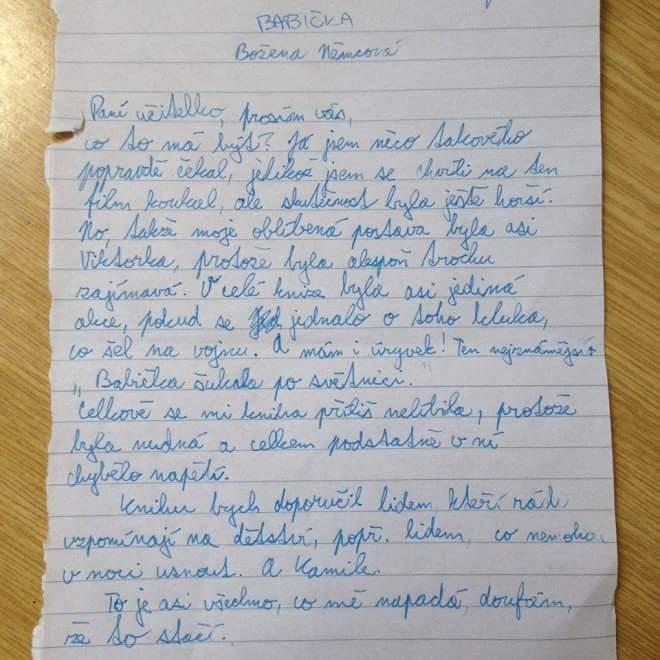 BABIČKA
Božena Němcová
Paní učitelko, prosím vás,
co to má být? Já jsem něco takového
popravdě čekal, jelikož jsem se chvíli na ten
film koukal, ale skutečnost byla ještě horší.
No, takže moje oblíbená postava byla asi
Viktorka, protože byla alespoň trochu
zajímavá. V celé knize byla asi jediná
akce, pokud se jednalo o toho kluka,
co šel na vojnu. A mám i úryvek! Ten nejznámější:
„Babička šukala po světnici."
Celkově se mi kniha příliš nelíbila, protože
byla nudná a celkem podstatně v ní
chybělo napětí.
Knihu bych doporučil lidem, kteří rádi
vzpomínají na dětství, popř. lidem, co nemoho
v noci usnout. A Kamile.
To je asi všechno, co mě napadá, doufám,
že to stačí.